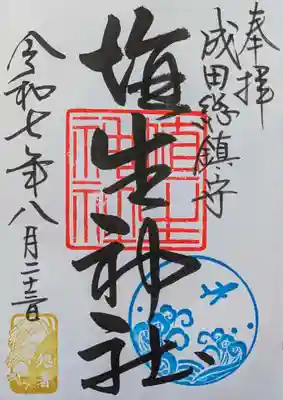 奉拝
成田総鎮守
埴生神社
埴生神社
令和七年八月二十三日